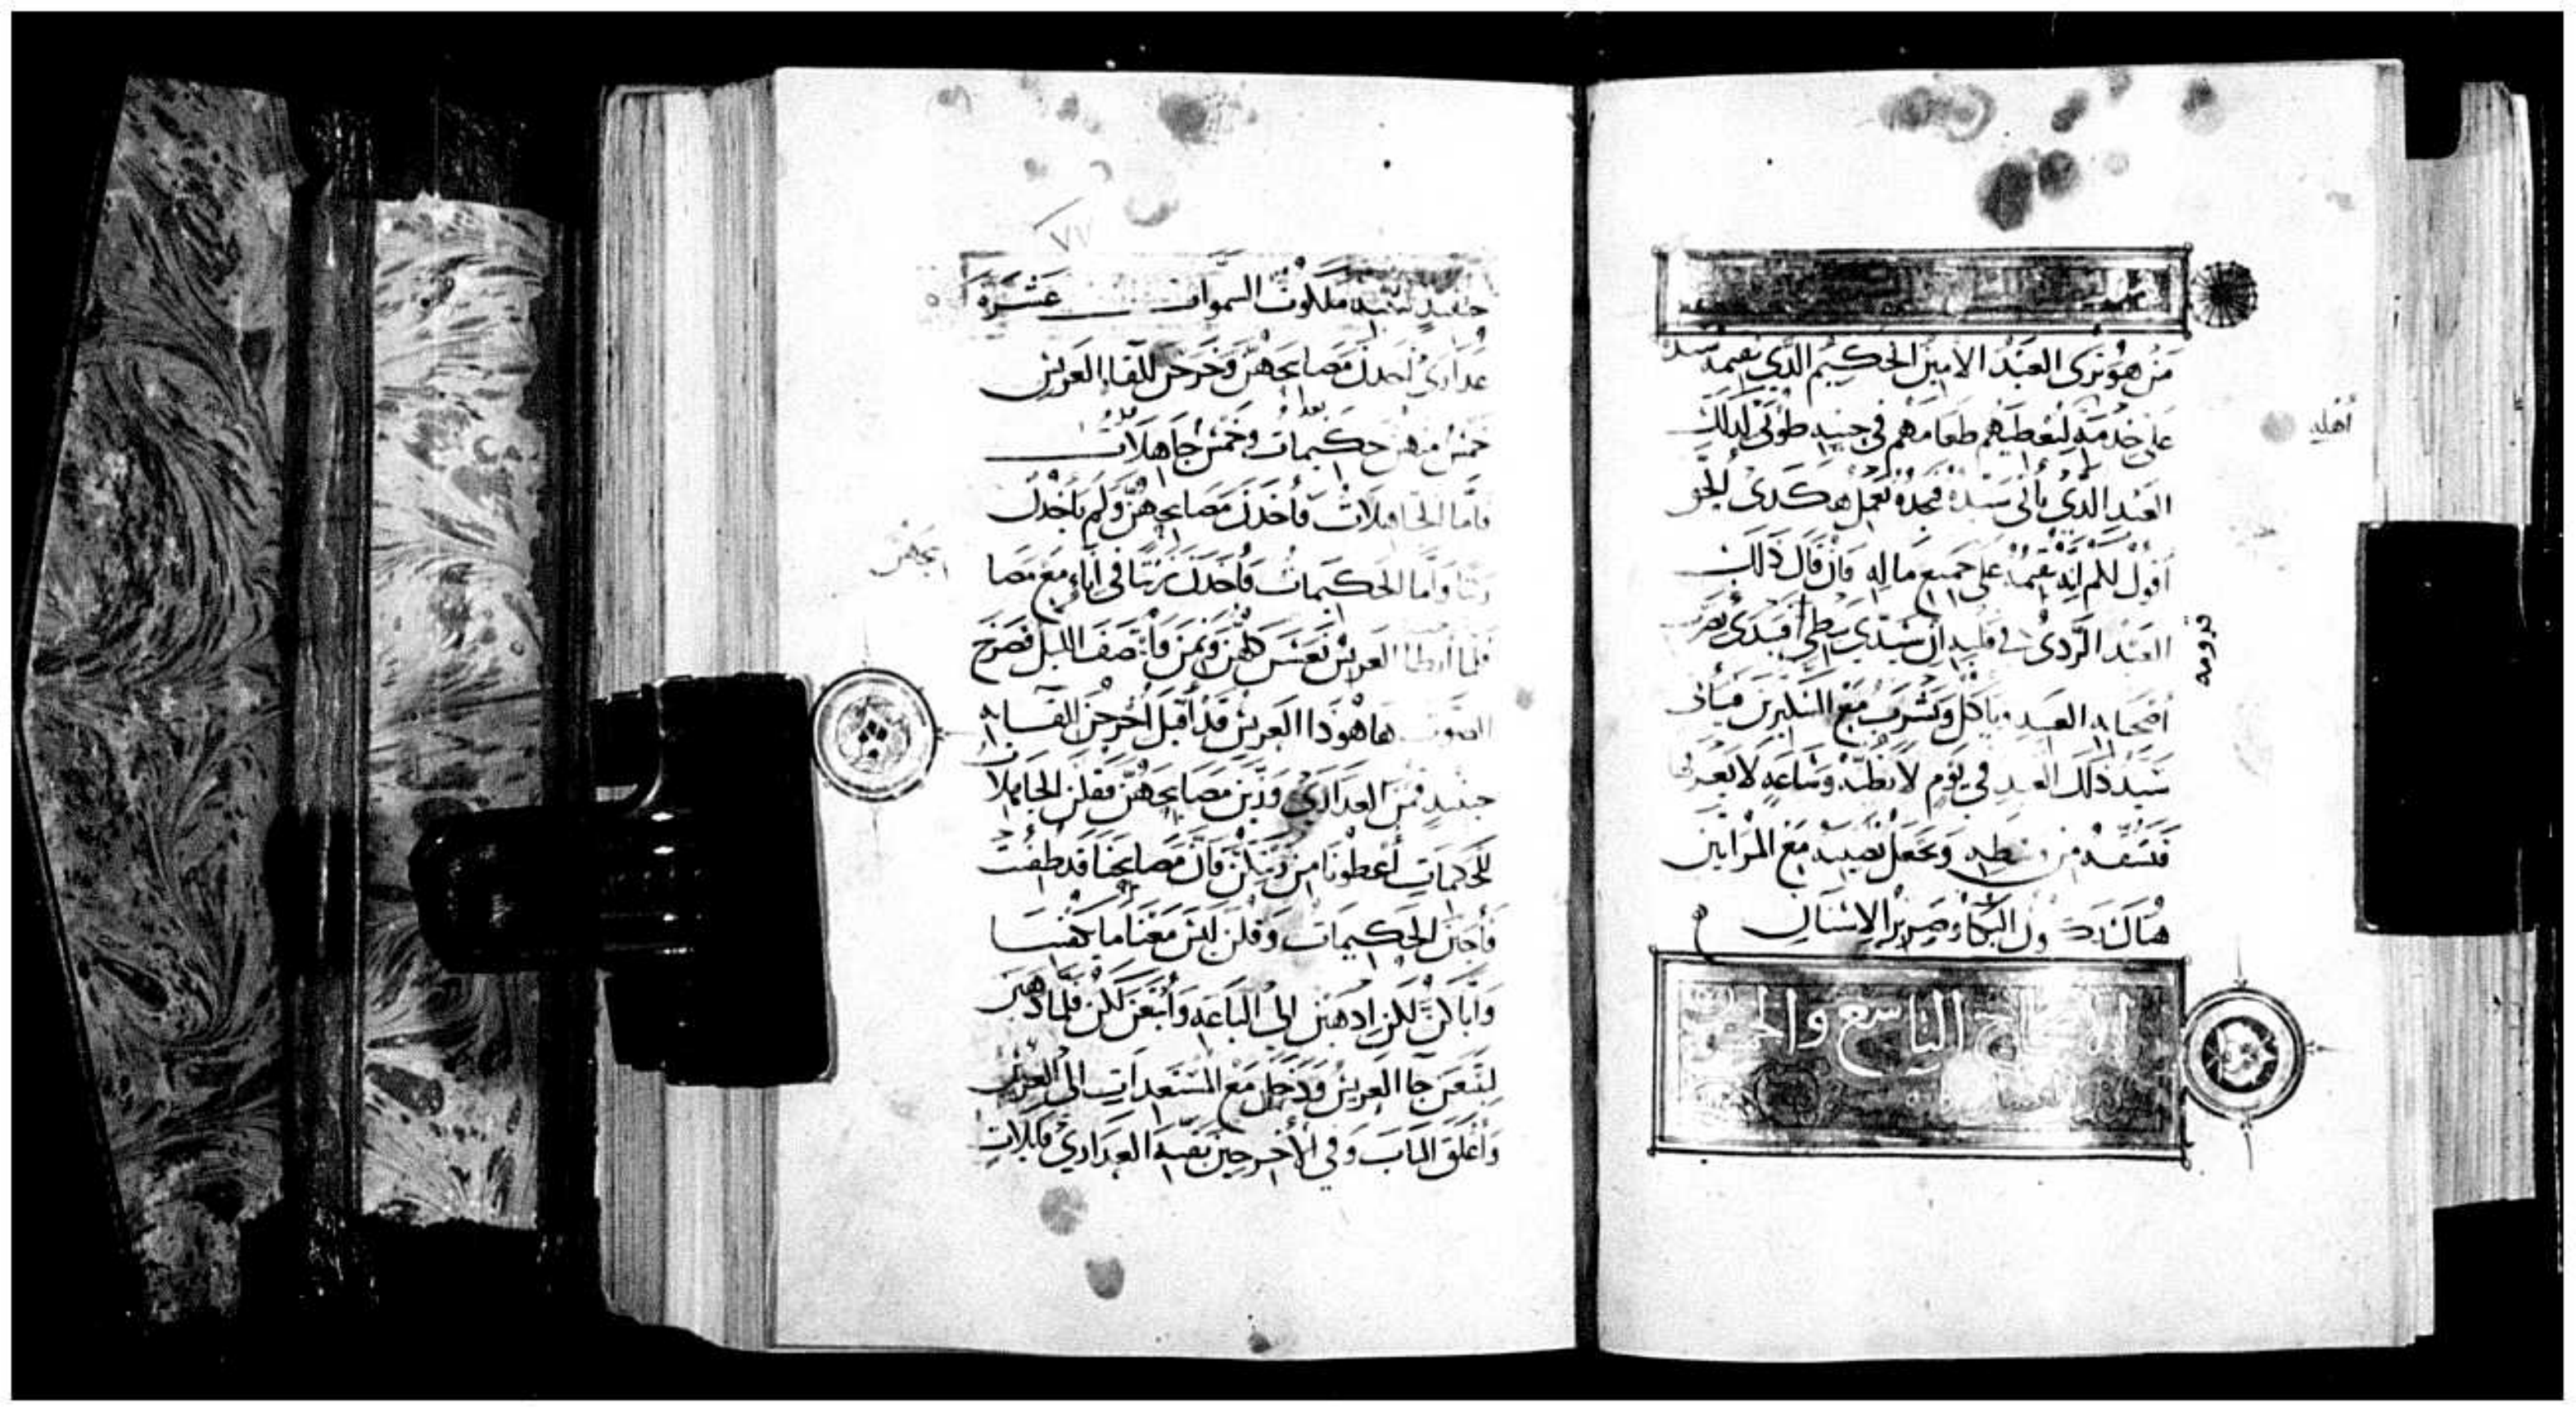 من هو ترى العبد الامين الحكيم الذي يقيمه سيده
على خدمه ليعطيهم طعامهم في حينه طوبى لذلك
أهله
العبد الذي يأتي سيده فيجده يعمل هكدى الحق
أقول لكم انه يقيمه على جميع ماله فان قال ذلك
العبد الردي في قلبه ان سيدي يبطي فيبدى يضرب
قدومه
أصحابه العبيد وياكل ويشرب مع السكيرين فيأتي
سيد ذلك العبد في يوم لا يظنه وساعه لا يعرفها
فيشقه من وسطه ويجعل نصيبه مع المرايين
هناك يكون البكاء وصرير الاسنان
الاصحاح التاسع والخمسون
٧٧
حينيذ تشبه ملكوت السموات عشره
عدارى اخدن مصابيحهن وخرجن للقاء العريس
خمس منهن حكيمات وخمس جاهلات
فاما الجاهلات فأخدن مصابيحهن ولم ياخدن
زيتا واما الحكيمات فأخدن زيتا في اناء مع مصا
بيحهن
فلما أبطا العريس نعسن كلهن ونمن وانتصف الليل فصرخ
الصوت هاهودا العريس قد أقبل أخرجن للقائه
حينيذ قمن العدارى وزين مصابيحهن فقلن الجاهلات
للحكيمات أعطونا من زيتكن فان مصابيحنا قد طفيت
فأجبن الحكيمات وقلن ليس معنا ما يكفينا
واياكن لكن ادهبن الى الباعه وأبتعن لكن فلما دهبن
ليبتعن جا العريس ودخل مع المستعدات الى العرس
وأغلق الباب وفي الأخر جين بقية العدارى قايلات